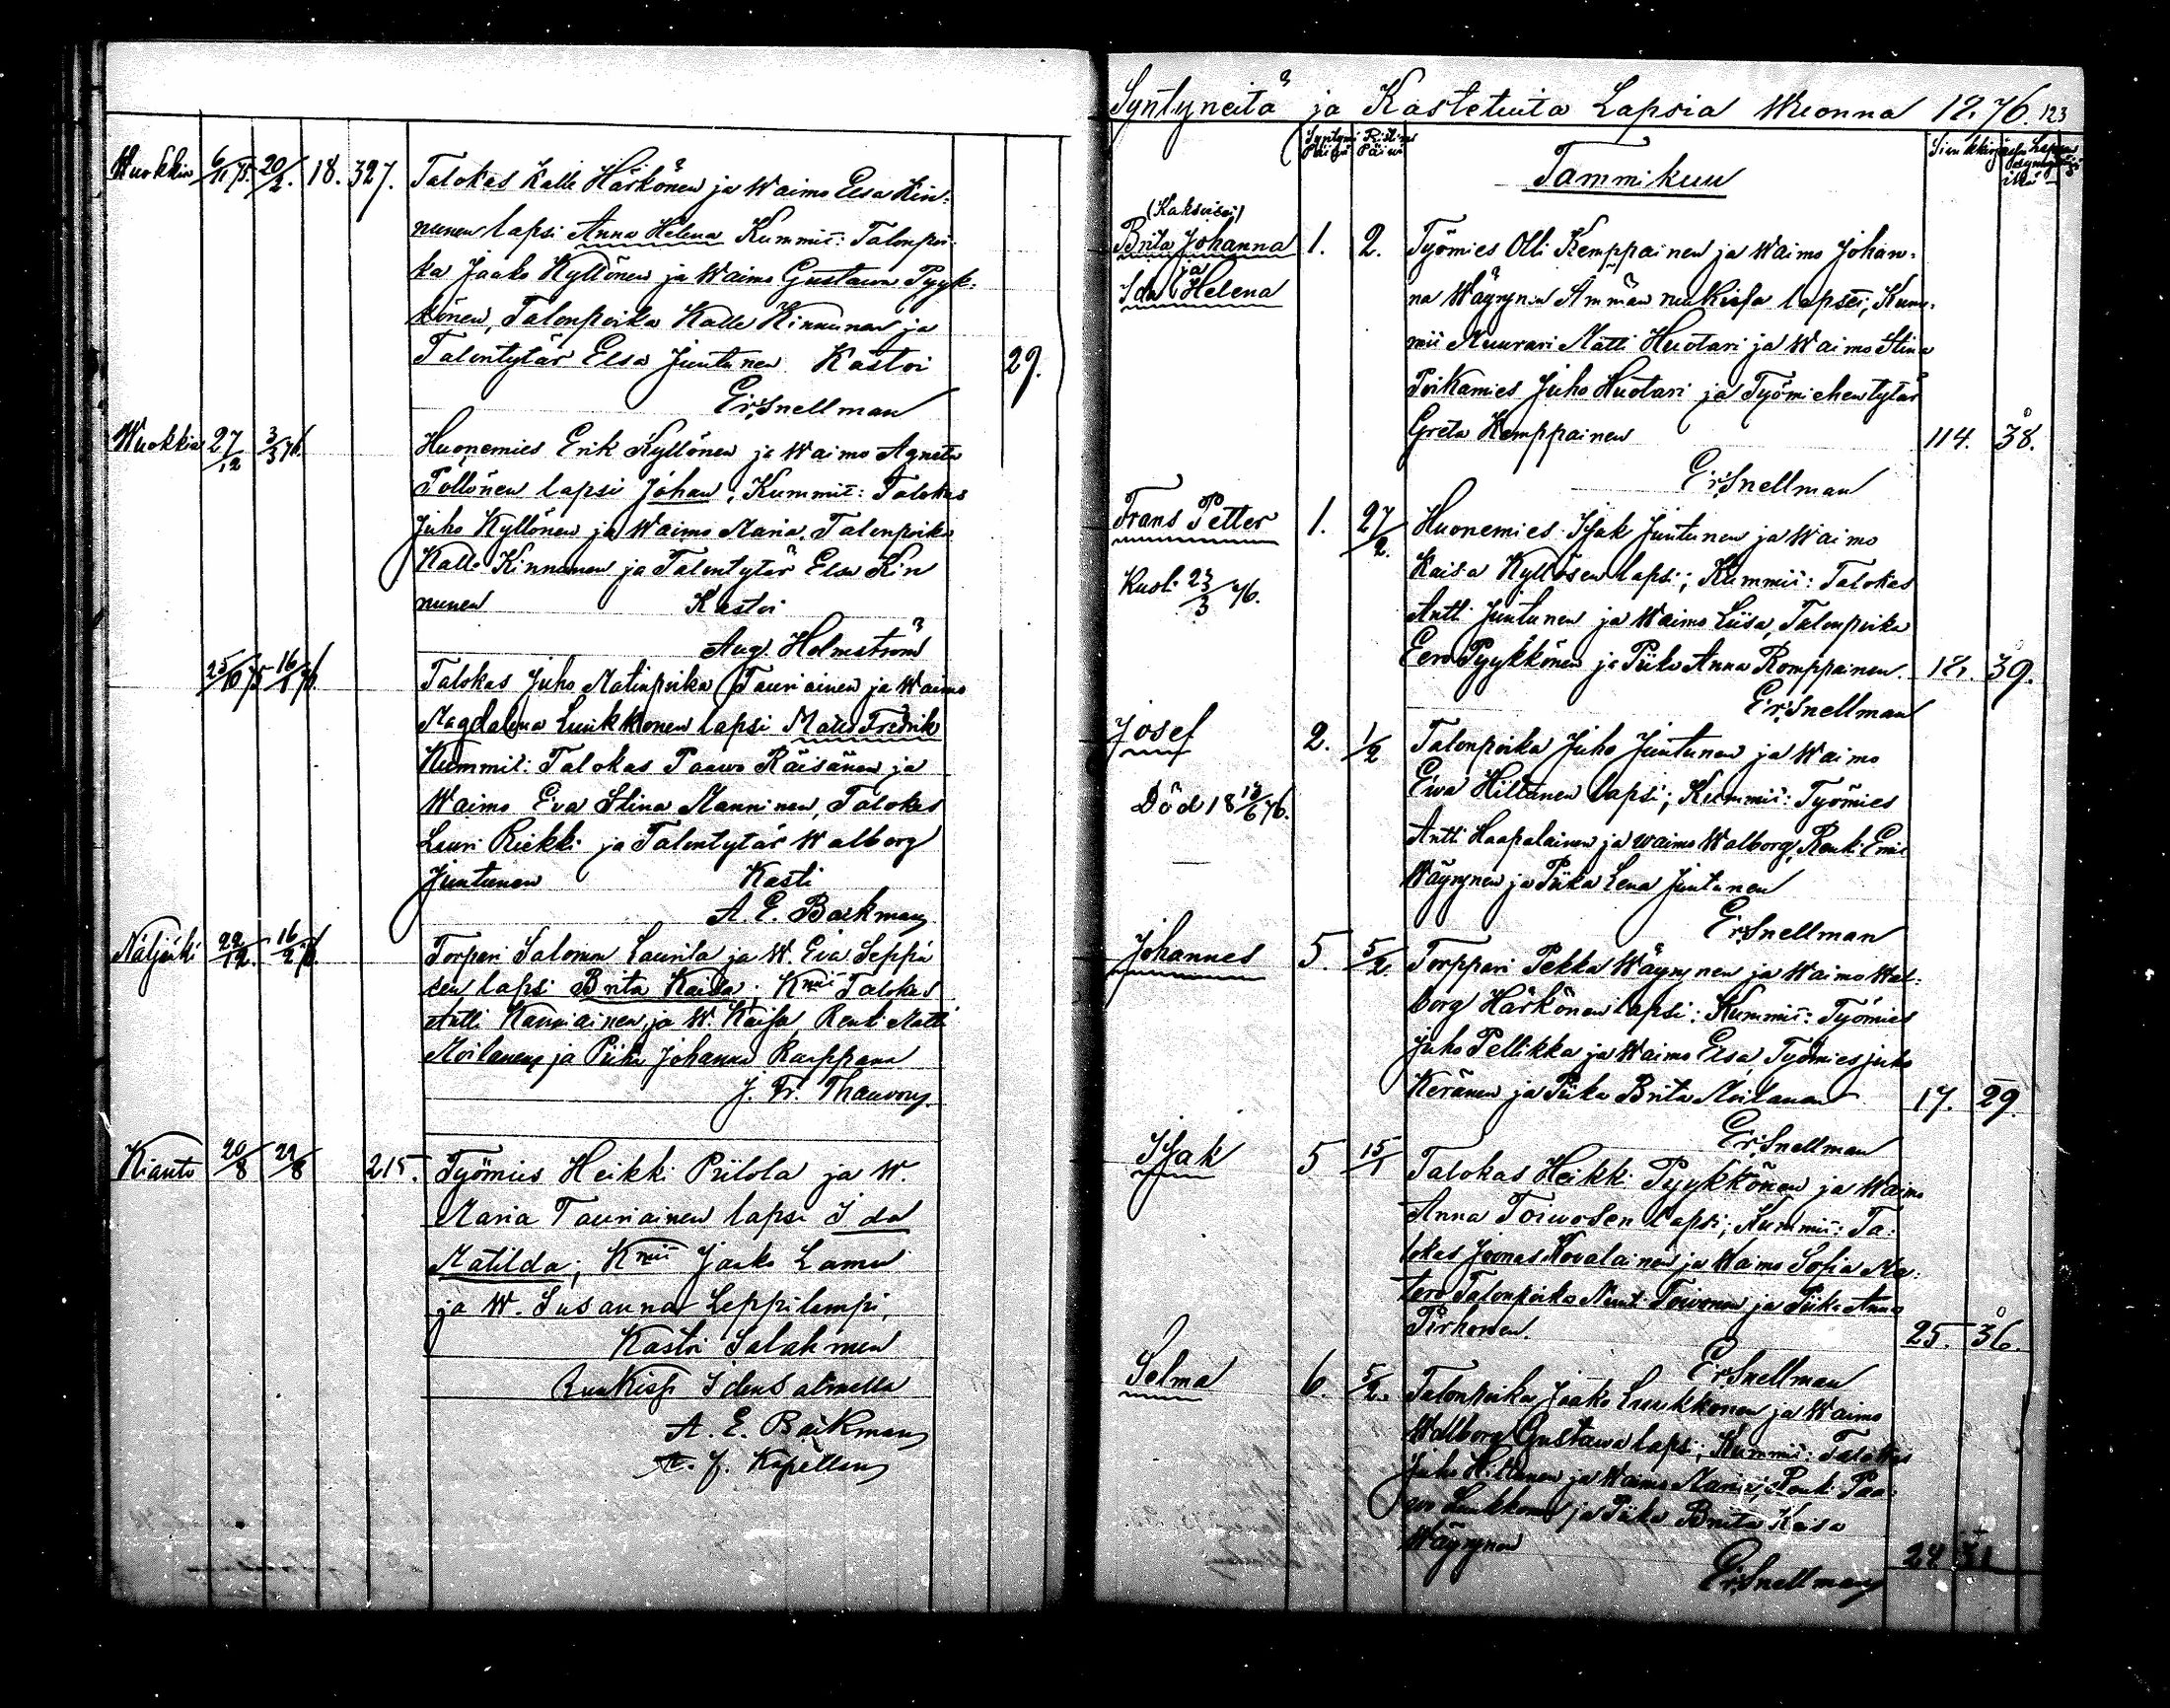 Wuokkin 6/11 75. 20/2. 18. 327. Talokas Kalle Härkönen ja Waimo Elsa Kin-
nunen lapsi Anna Helena Kummit: Talonpoi-
ka Jaako Kyllönen ja Waimo Gustawa Pyyk-
könen, Talonpoika Kalle Kinnunen ja
Talontytär Elsa Juntunen Kastoi 29.
Er. Snellman
Wuokkin 27/12 3/3 76. Huonemies Erik Kyllönen ja Waimo Agneta
Pöllönen lapsi Johan, Kummit: Talokas
Juho Kyllönen ja Waimo Maria, Talonpoika
Kalle Kinnunen ja Talontytär Elsa Kin
nunen Kastoi
Aug. Holmström
25/10 75 16/1 76. Talokas Juho Matinpoika Tauriainen ja Waimo
Magdalena Luukkonen lapsi Mats Fredrik
Kummit: Talokas Paawo Räisänen ja
Waimo Eva Stina Manninen, Talokas
Lauri Riekki ja Talontytär Walborg
Juntunen Kasti
A. E. Backman
Näljänki 22/12. 16/2 76. Torpari Salomon Laurila ja W. Eva Seppä
sen lapsi Brita Kaisa. Kmii Talokas
Antti Kauniainen ja W. Kaisa, Renki Matti
Moilanen ja Piika Johanna Karppana
J. Fr. Thauvon
Kianto 20/8 22/8 215. Työmies Heikki Piilola ja W.
Maria Tauriainen lapsi Ida
Matilda; Kmii Jaako Lamu
ja W. Susanna Leppilampi,
Kastoi Salahmen
Ruukissa Idensalmella
A. E. Backman
A. J. Kapellan
Syntyneitä ja Kastetuita Lapsia Wuonna 1876. 123
Syntymä Päiwä Ristimä Päiwä
Tammikuu
(Kaksoiset)
Brita Johanna 1. 2. Työmies Olli Kemppainen ja Waimo Johan-
ja
Ida Helena na Wäyrynen Ämmän ruukissa lapset, Kum-
mii Muurari Matti Huotari ja Waimo Stina
Poikamies Juho Huotari ja Työmiehentytär
Greta Kemppainen 114. 38.
Er. Snellman
Frans Petter 1. 27/2. Huonemies Isak Juntunen ja Waimo
Kuol. 23/3 76. Kaisa Kyllösen lapsi; Kummii: Talokas
Antti Juntunen ja Waimo Liisa, Talonpoika
Eero Pyykkönen ja Piika Anna Romppainen. 181. 39.
Er. Snellman
Josef 2. 1/2 Talonpoika Juho Juntunen ja Waimo
Död 18 13/6 76. Ewa Hiltunen lapsi; Kummii: Työmies
Antti Haapalainen ja waimo Walborg, Renki
Wäyrynen ja Piika Lena Juntunen
Er. Snellman
Johannes 5. 5/2 Torppari Pekka Wäyrynen ja Waimo Wal-
borg Härkönen lapsi: Kummii: Työmies
Juho Pellikka ja Waimo Elsa, Työmies juho
Keränen ja Piika Brita Moilanen 17. 29.
Er. Snellman
Isak 5 15/1 Talokas Heikki Pyykkönen ja Waimo
Anna Toiwosen lapsi; Kummii: Ta-
lokas Joonas Kovalainen ja Waimo Sofia Me-
tero Talonpoika Toivonen ja Piika Anna
Pirhonen. 25. 36.
Er. Snellman
Selma 6. 5/2. Talonpoika Jaako Luukkonen ja Waimo
Walborg Gustawa lapsi; Kummii: Talokas
Juho Hiltunen ja Waimo Maria, Renki Paa-
wo Luukkonen ja Piika Brita Kaisa
Wäyrynen 24 31
Er. Snellman